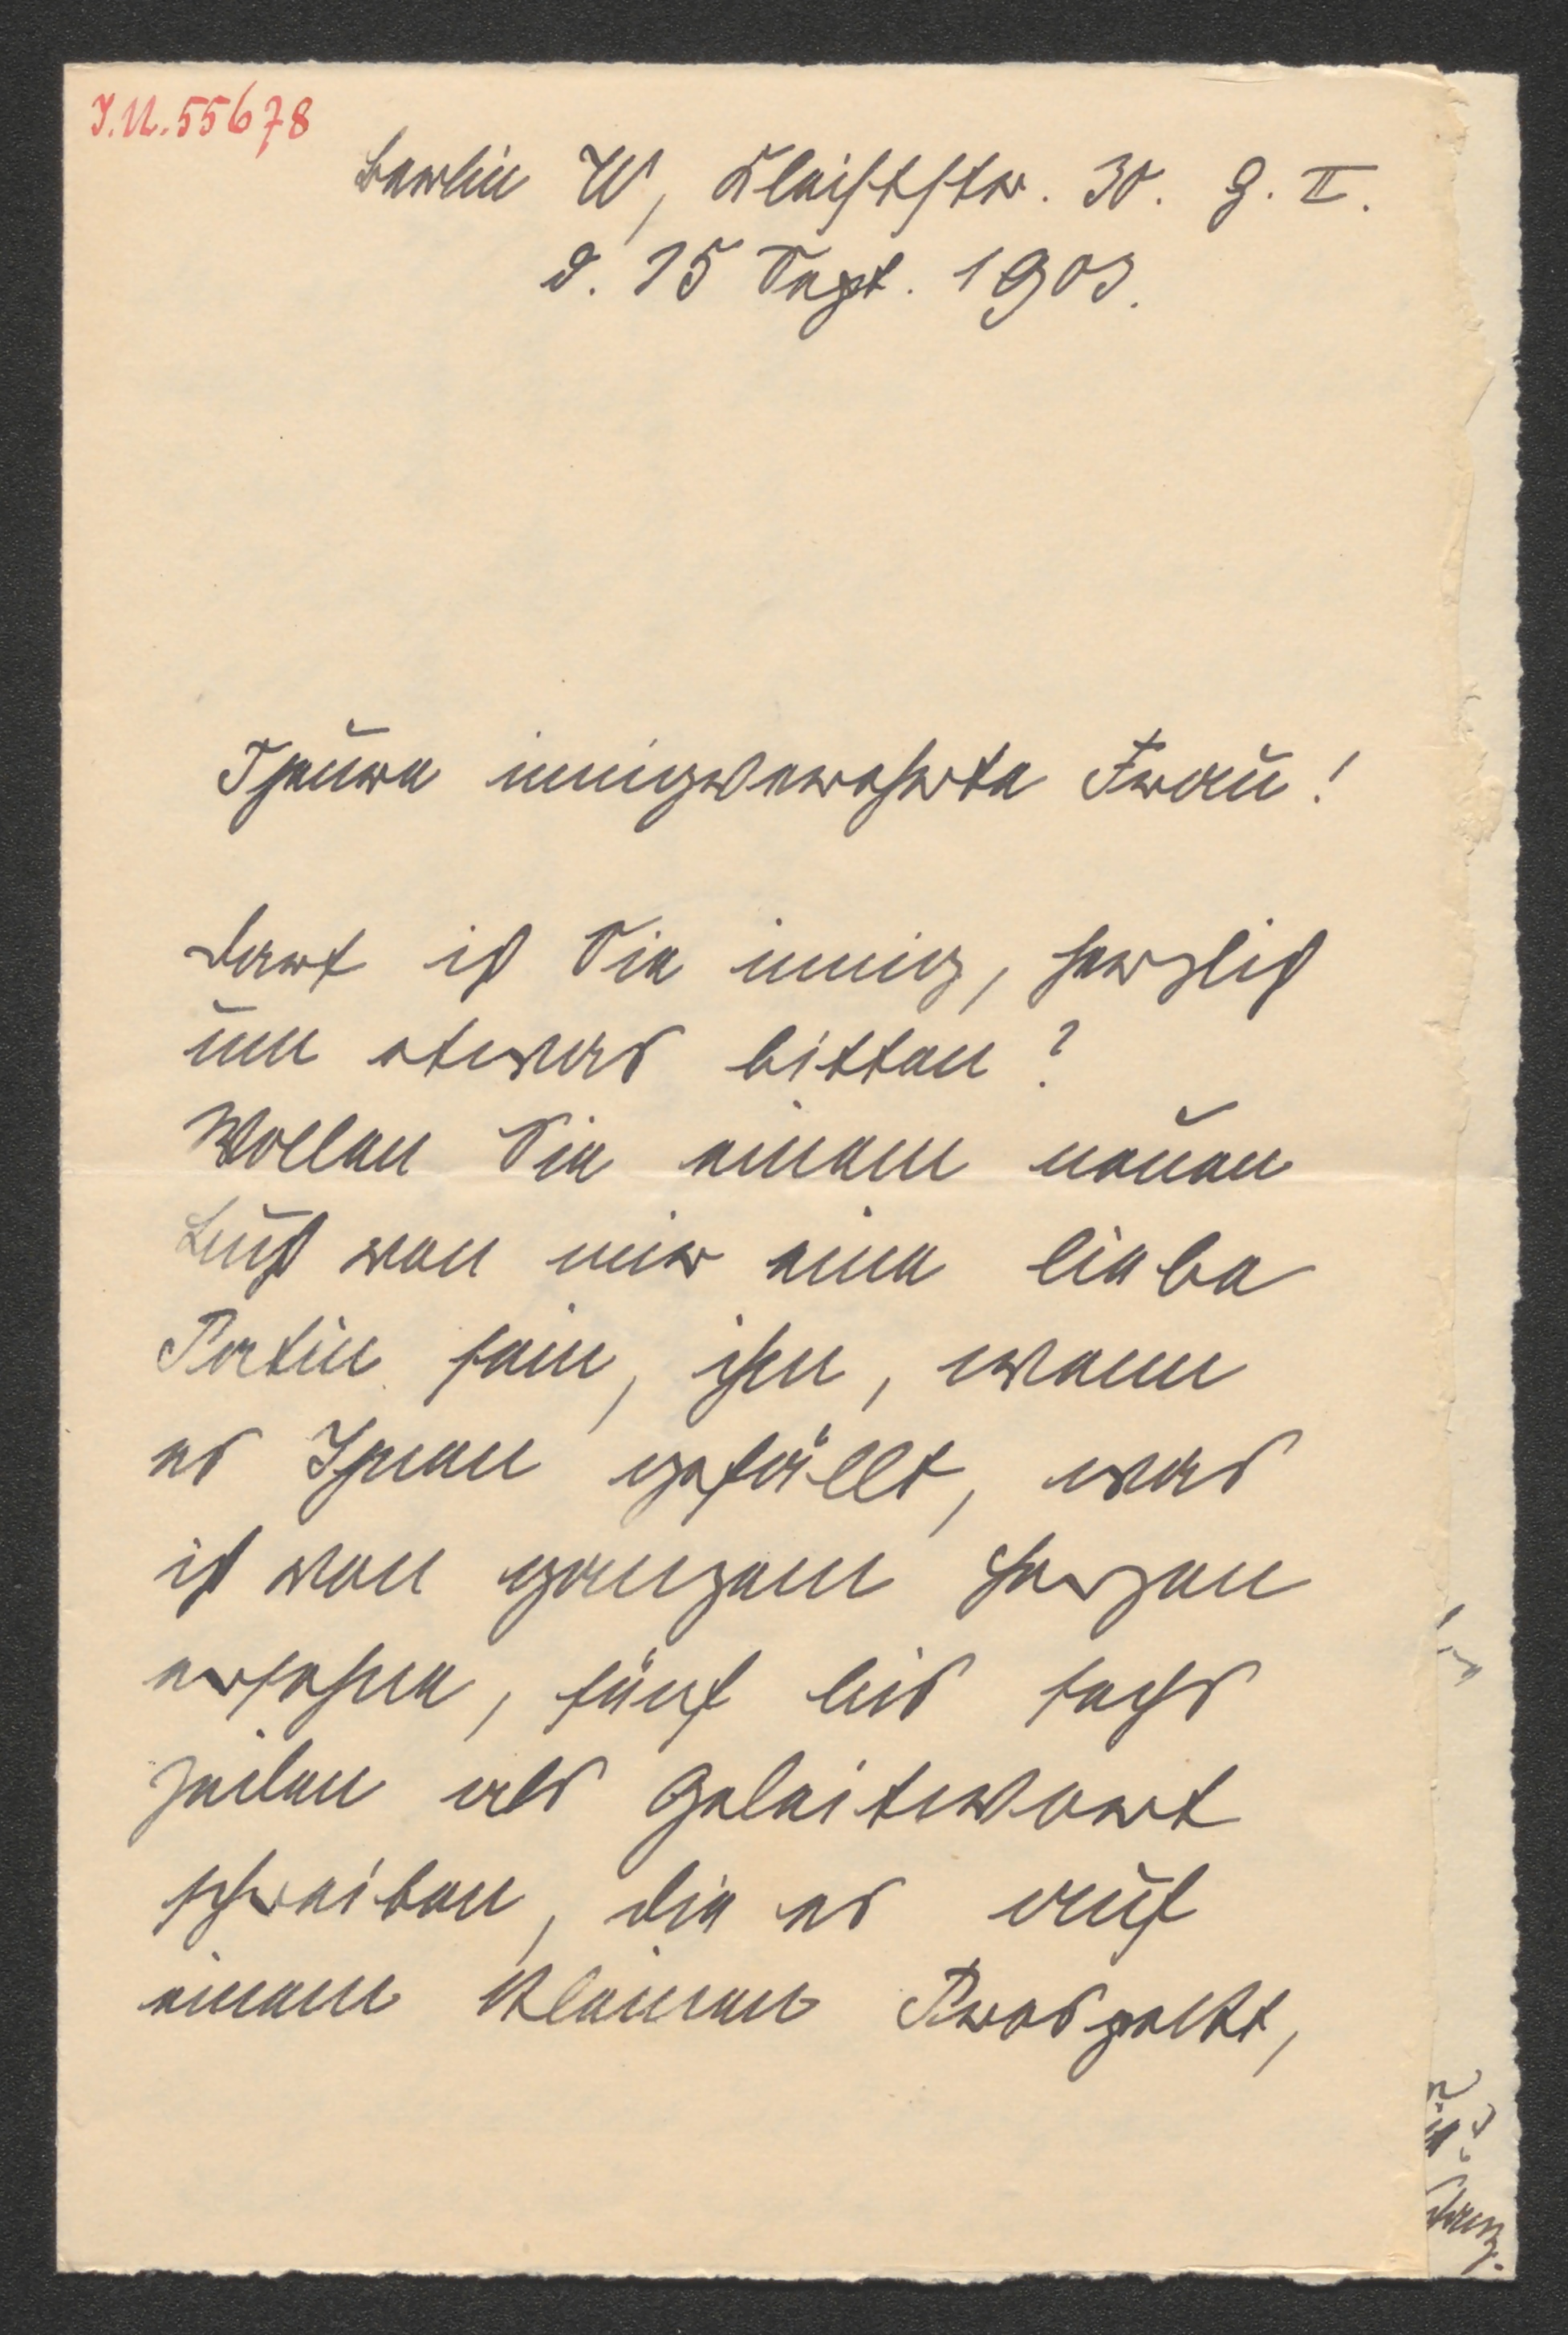 I.N. 55678
Berlin W, Kleiststr. 30. G. II.
d. 15 Sept. 1903.
Theure innigverehrte Frau!
Darf ich Sie innig, herzlich
um etwas bitten?
Wollen Sie einem neuen
Buch von mir eine liebe
Patin sein, ihm, wenn
es Ihnen gefällt, was
ich von ganzem Herzen
ersehne, fünf bis sechs
Zeilen als Geleitwort
schreiben, die es auf
einem kleinen Prospekt,